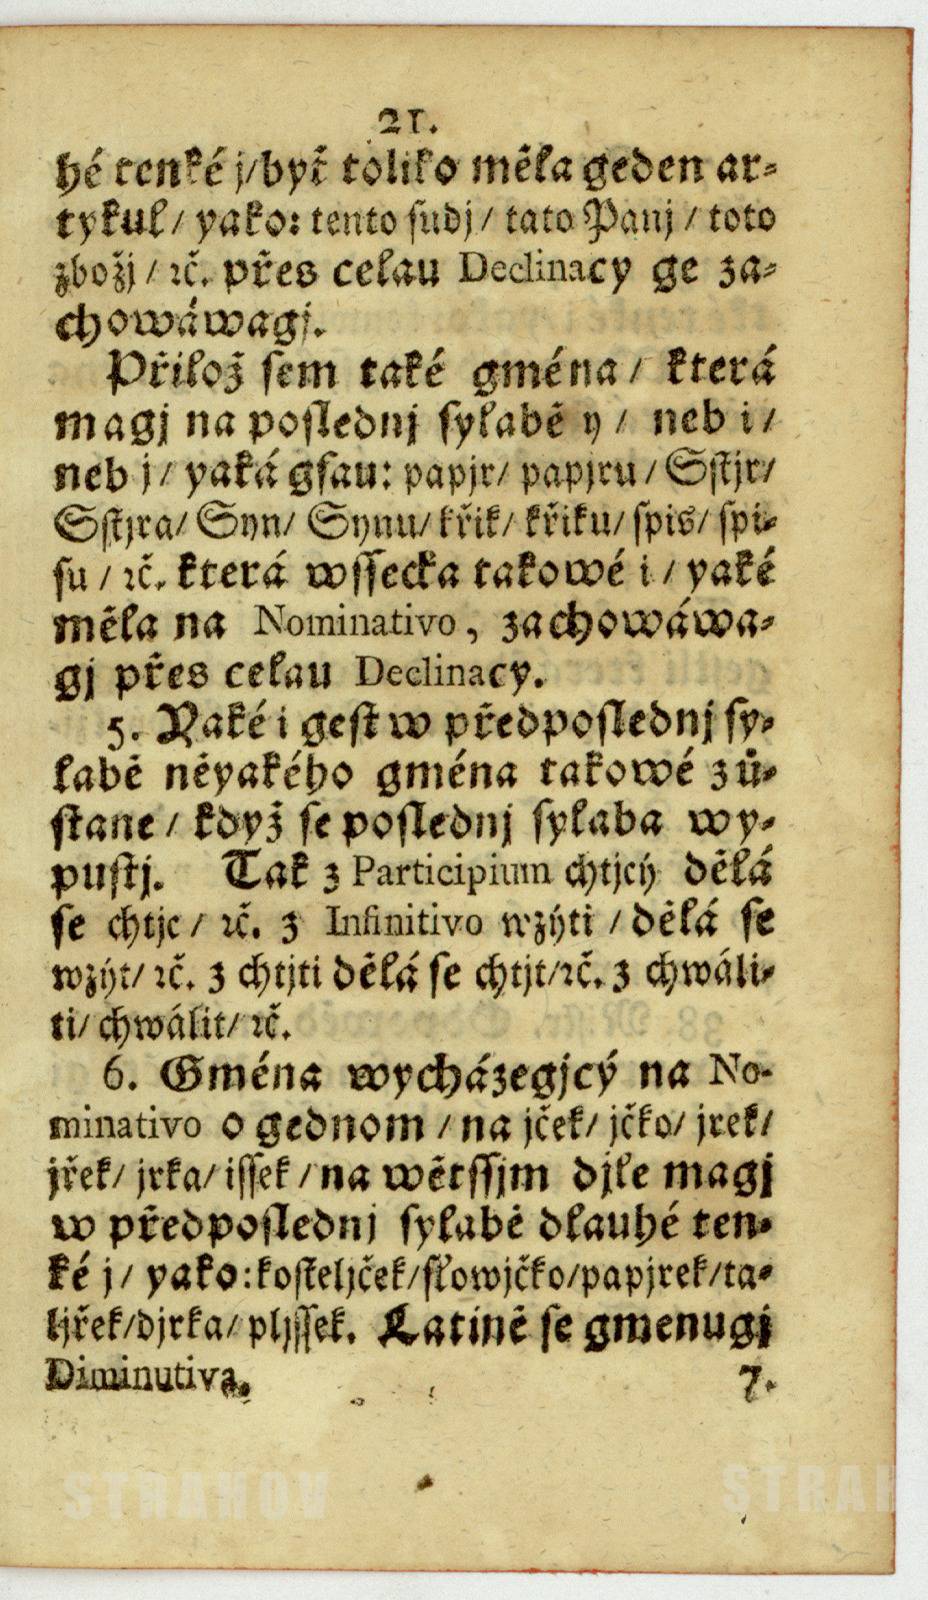 21.
hé tenké j/byť toliko měla geden ar-
tykul/ yako: tento sudj/ tato Panj/ toto
zbožj/ ꝛč. přes celau Declinacy ge za-
chowáwagj.
Přilož sem také gména/ která
magj na poslednj sylabě y/ neb i/
neb j/ yaká gsau: papjr/ papjru/ Sstjr/
Sstjra/ Syn/ Synu/ křik/ křiku/ spis/ spi-
su/ ꝛč. která wssecka takowé i/ yaké
měla na Nominativo, zachowáwa-
gj přes celau Declinacy.
5. Yaké i gest w předposlednj sy-
labě něyakého gména takowé zů-
stane/ když se poslednj sylaba wy-
pustj. Tak z Participium chtjcý dělá
se chtjc/ ꝛč. z Infinitivo wzýti/ dělá se
wzýt/ ꝛč. z chtjti dělá se chtjt/ꝛč. z chwáli-
ti/ chwálit/ ꝛč.
6. Gména wycházegjcý na No-
minativo o gednom/ na jček/ jčko/ jrek/
jřek/ jrka/ issek/ na wětssjm djle magj
w předposlednj sylabě dlauhé ten-
ké j/ yako:kosteljček/slowjčko/papjrek/ta-
ljřek/djrka/ pljssek. Latině se gmenugj
Diminutiva.
7.
STRAHOV
STRAH